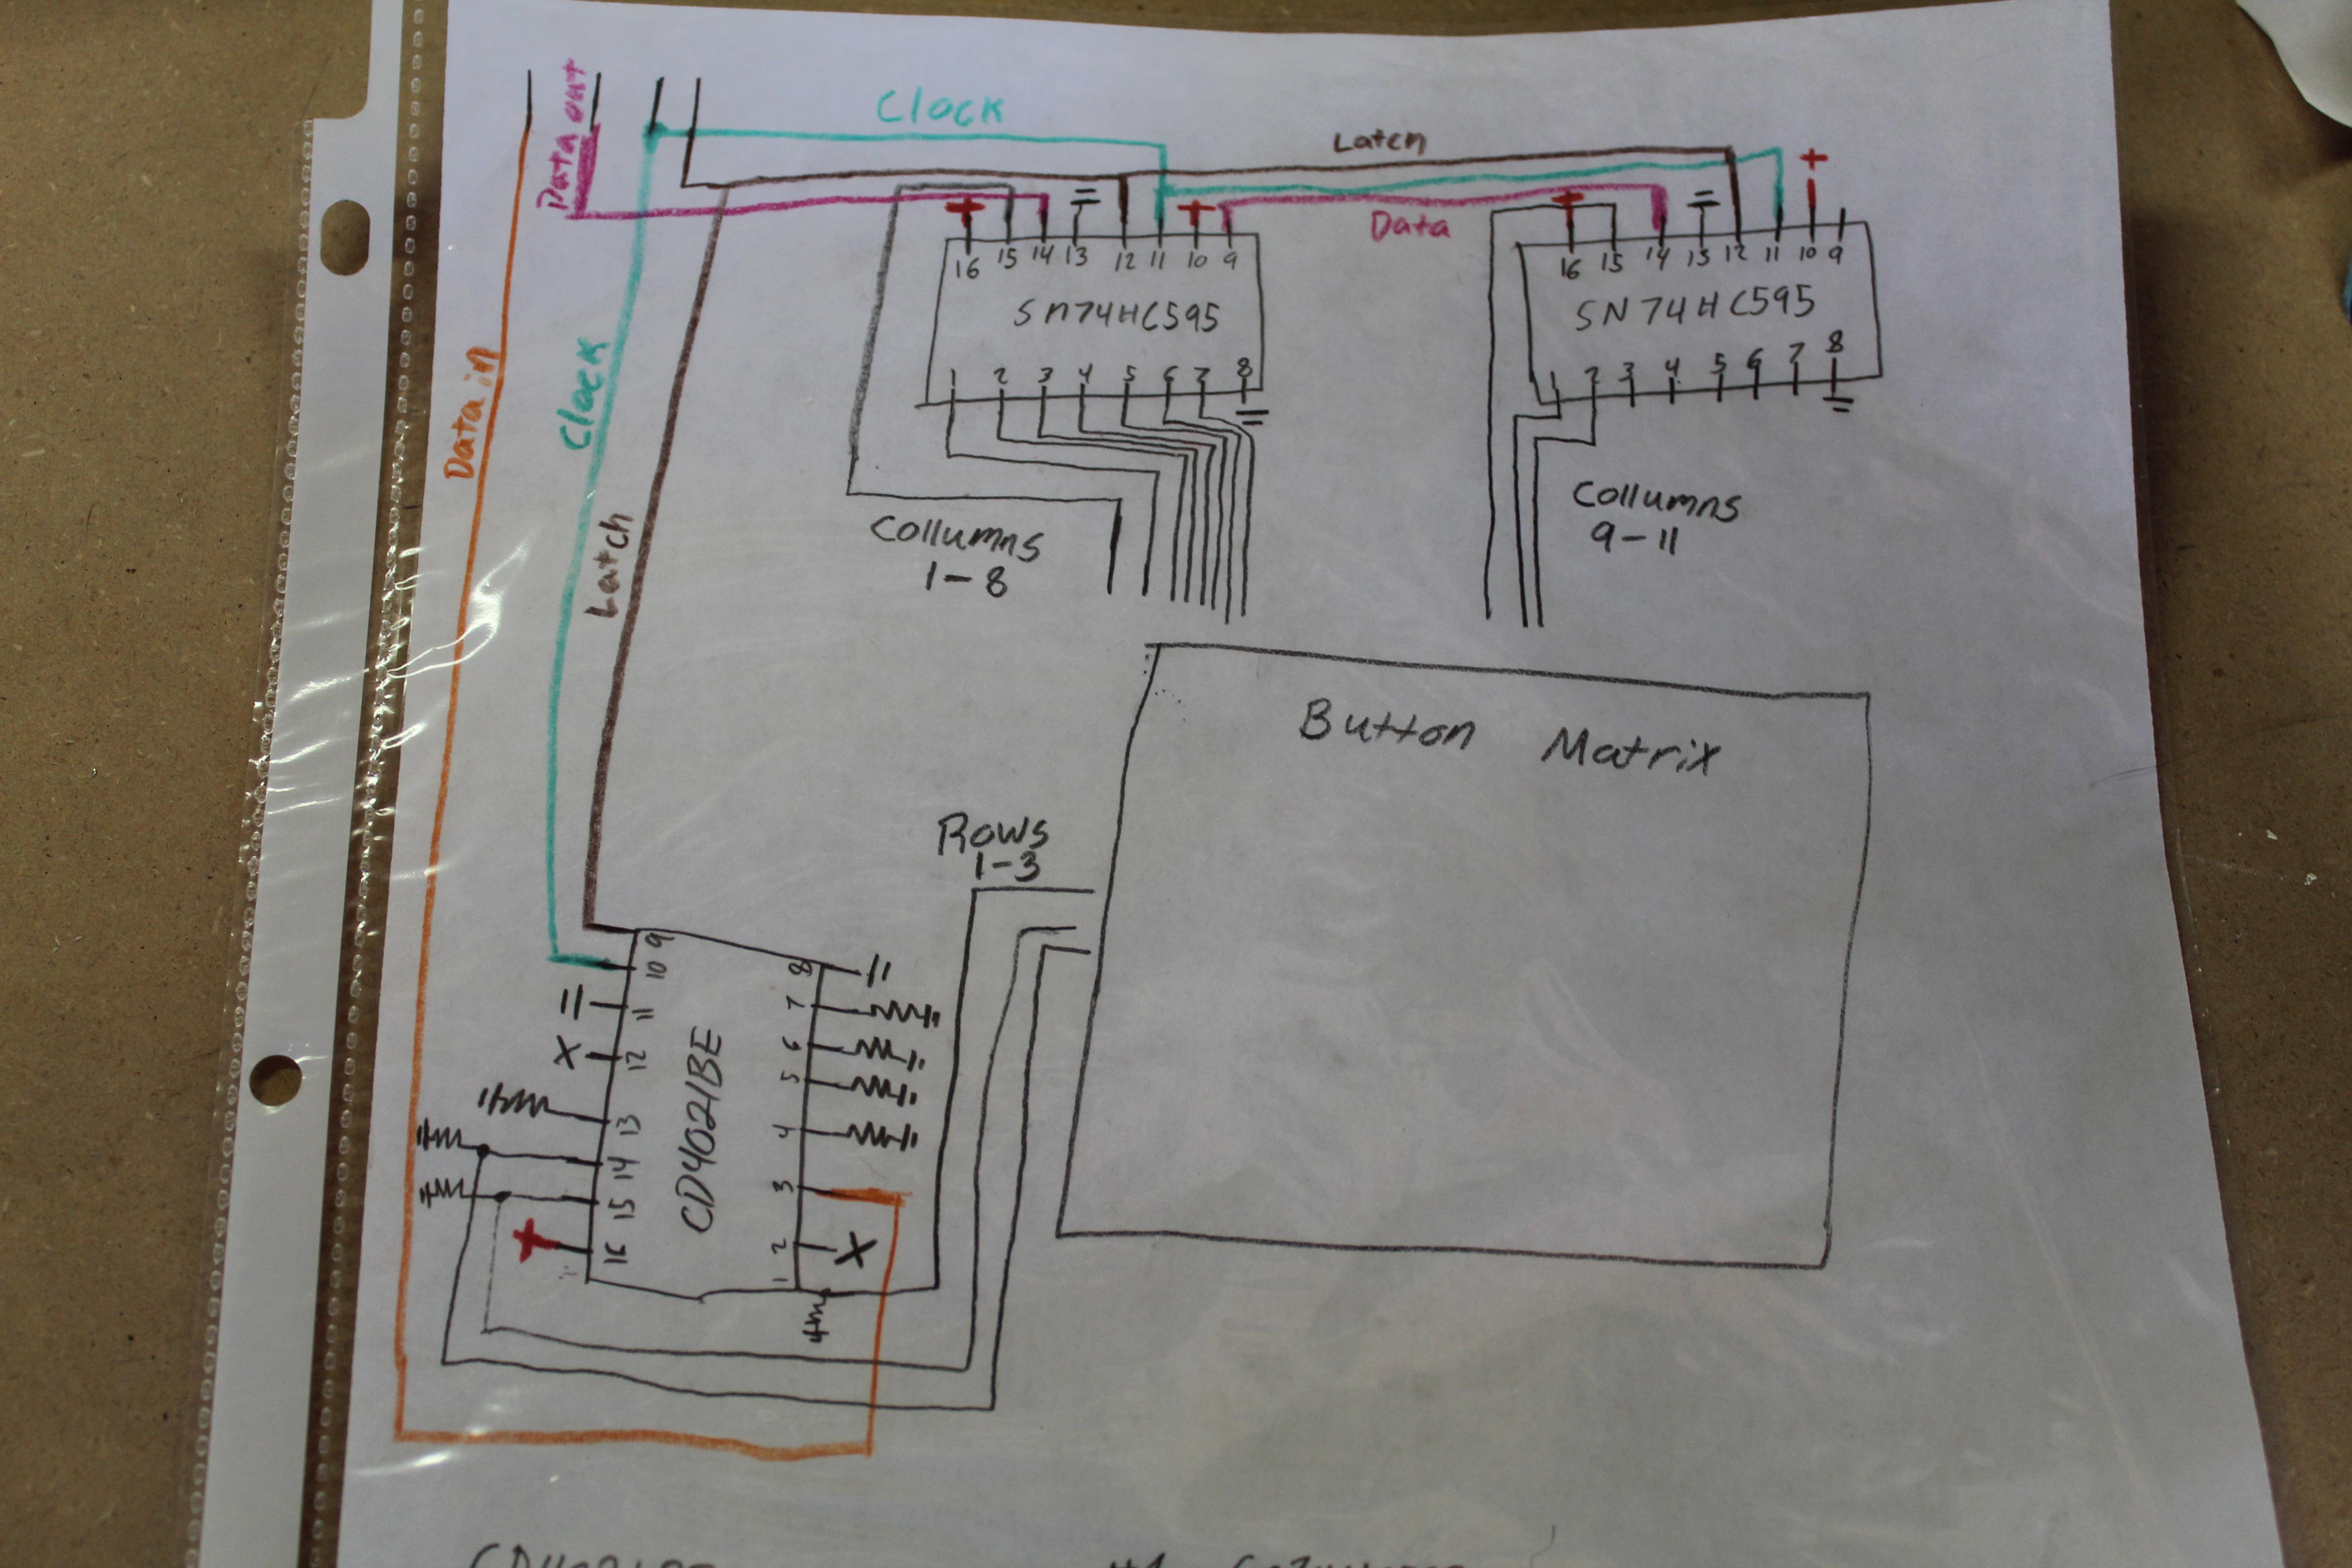 Data out
Clock
Latch
+ + + +
Data
16 15 14 13 12 11 10 9
SN74HC595
1 2 3 4 5 6 7 8
16 15 14 13 12 11 10 9
SN74HC595
1 2 3 4 5 6 7 8
Data in
Clock
Latch
Collumns
1-8
Collumns
9-11
Button Matrix
Rows
1-3
9 10 11 12 13 14 15 16
CD4021BE
8 7 6 5 4 3 2 1
X
X
+